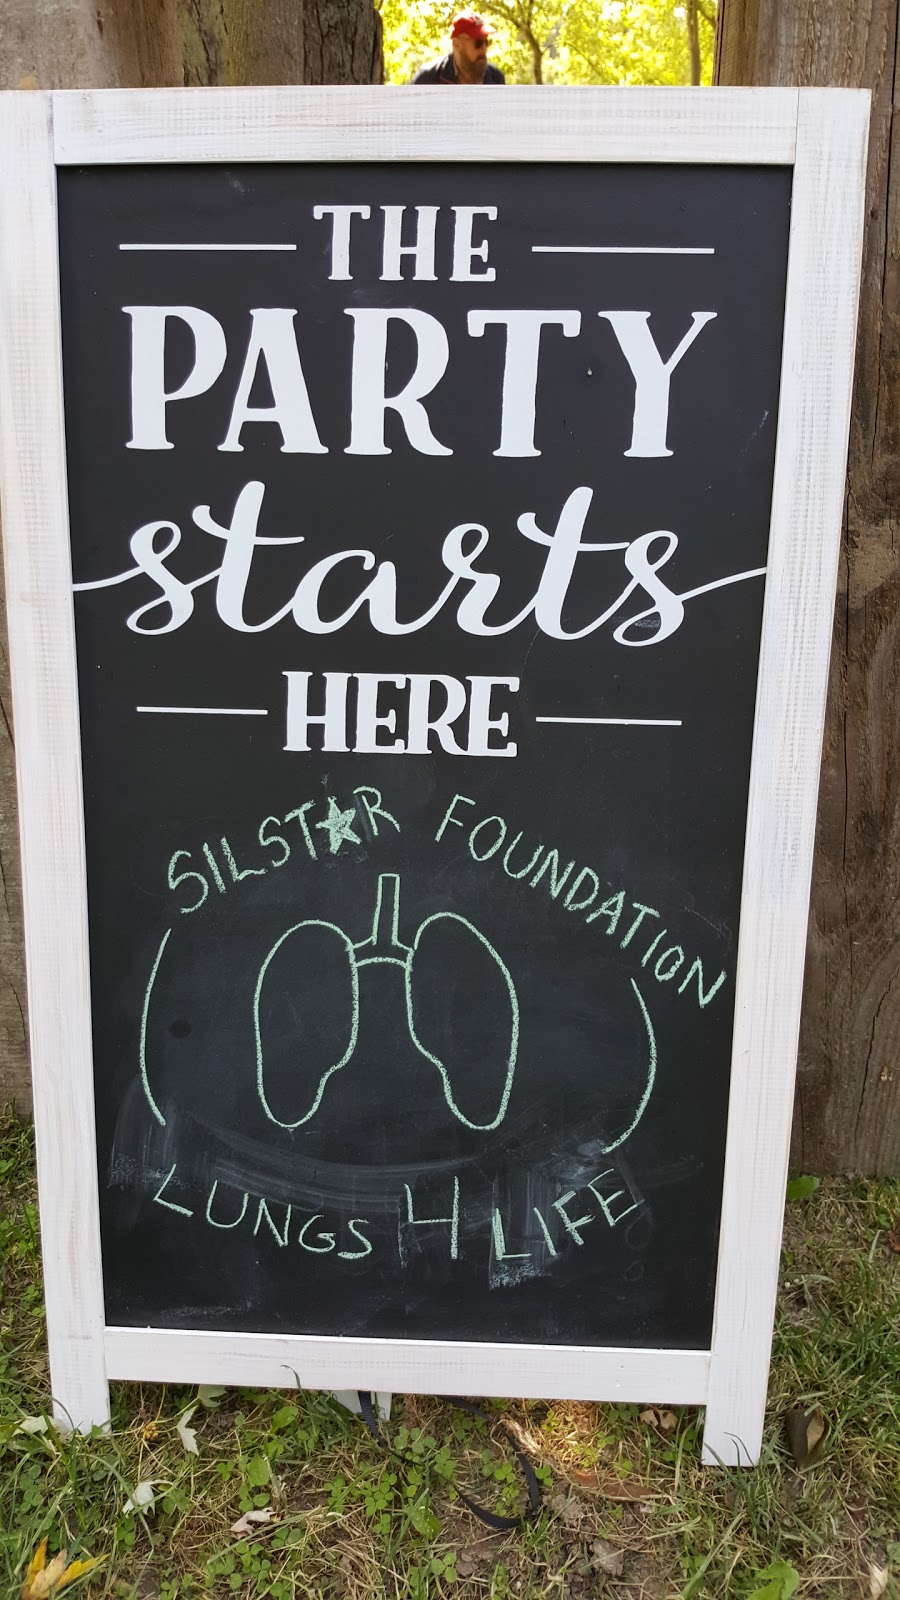 THE
PARTY
starts
HERE
SILST★R FOUNDATION
LUNGS 4 LIFE